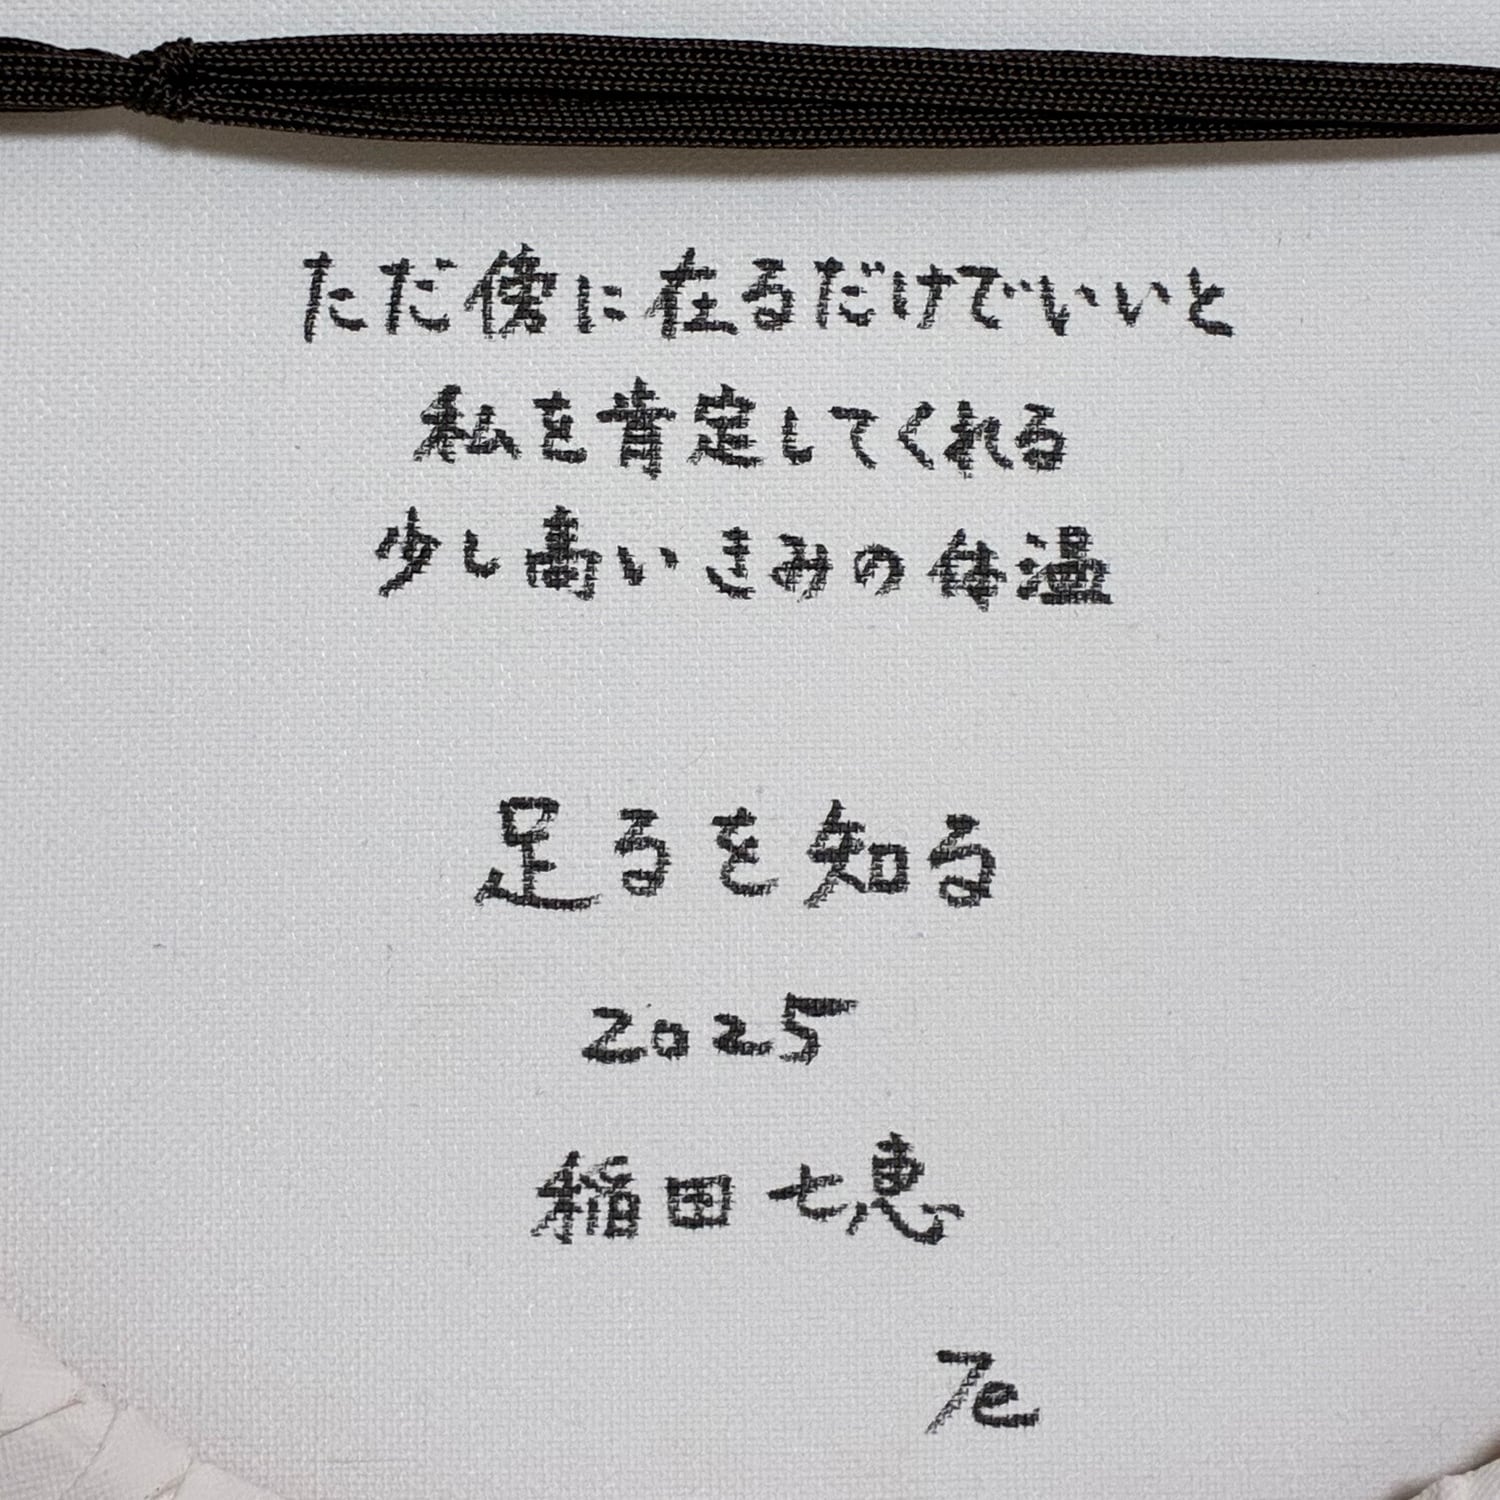 ただ傍に在るだけでいいと
私を肯定してくれる
少し高いきみの体温
足るを知る
2025
稲田七恵
7e